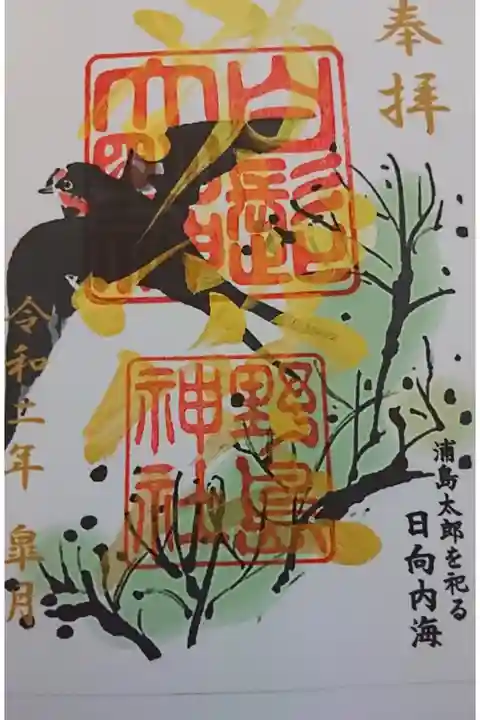 奉拝
白髭
大明神
野島
神社
浦島太郎を祀る
日向内海
令和二年 皐月